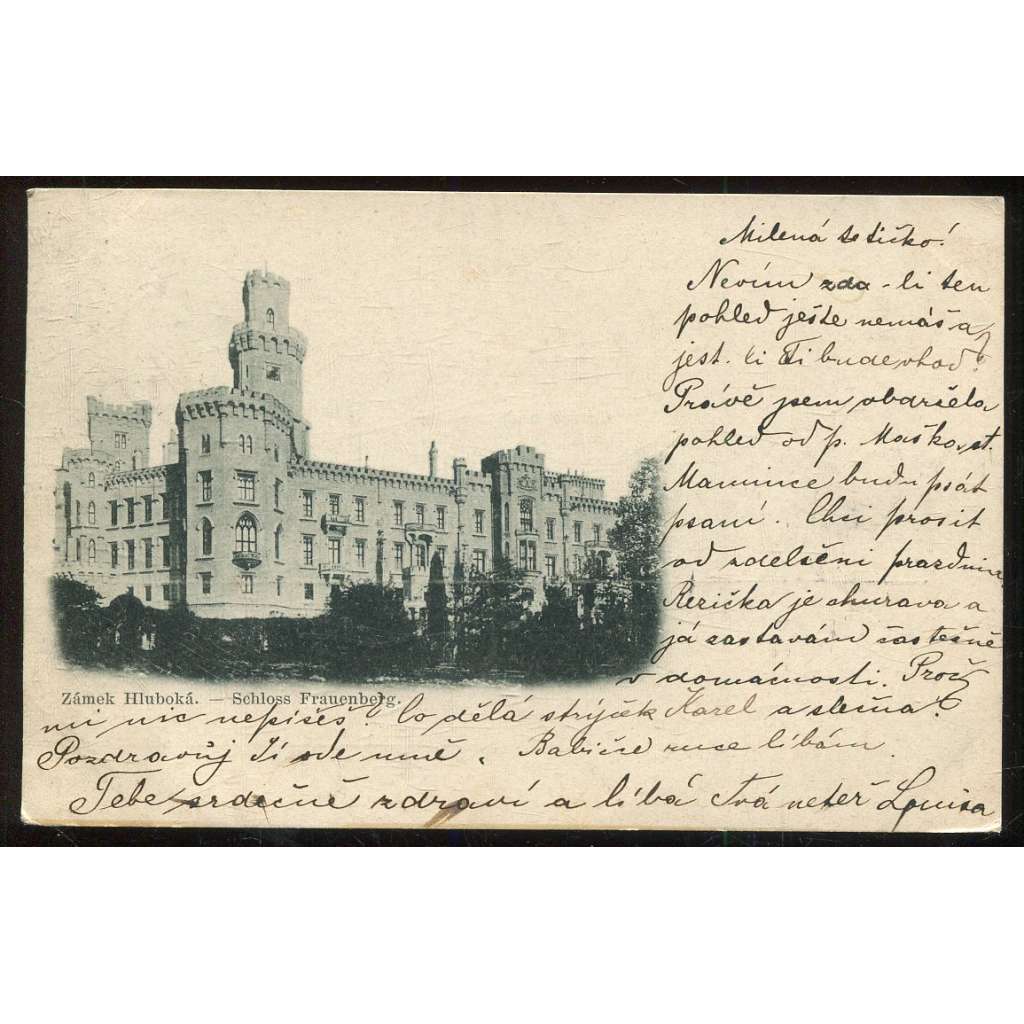 Milená tetičko!
Nevím zda-li ten
pohled ješte nemáš a
jest-li Ti bude vhod?
Právě jsem obdržela
pohled od p. Maško. st.
Mamince budu psát
psaní. Chci prosit
od sdelšení prazdnin
Rezička je churava a
já zastavám častečně
v domácnosti. Proč
mi nic nepíšeš? Co dělá strýček Karel a slečna?
Pozdravůj Jí ode mně. Babičce ruce líbám.
Tebe srdečně zdraví a líbá Tvá neteř Louisa
Zámek Hluboká. — Schloss Frauenberg.